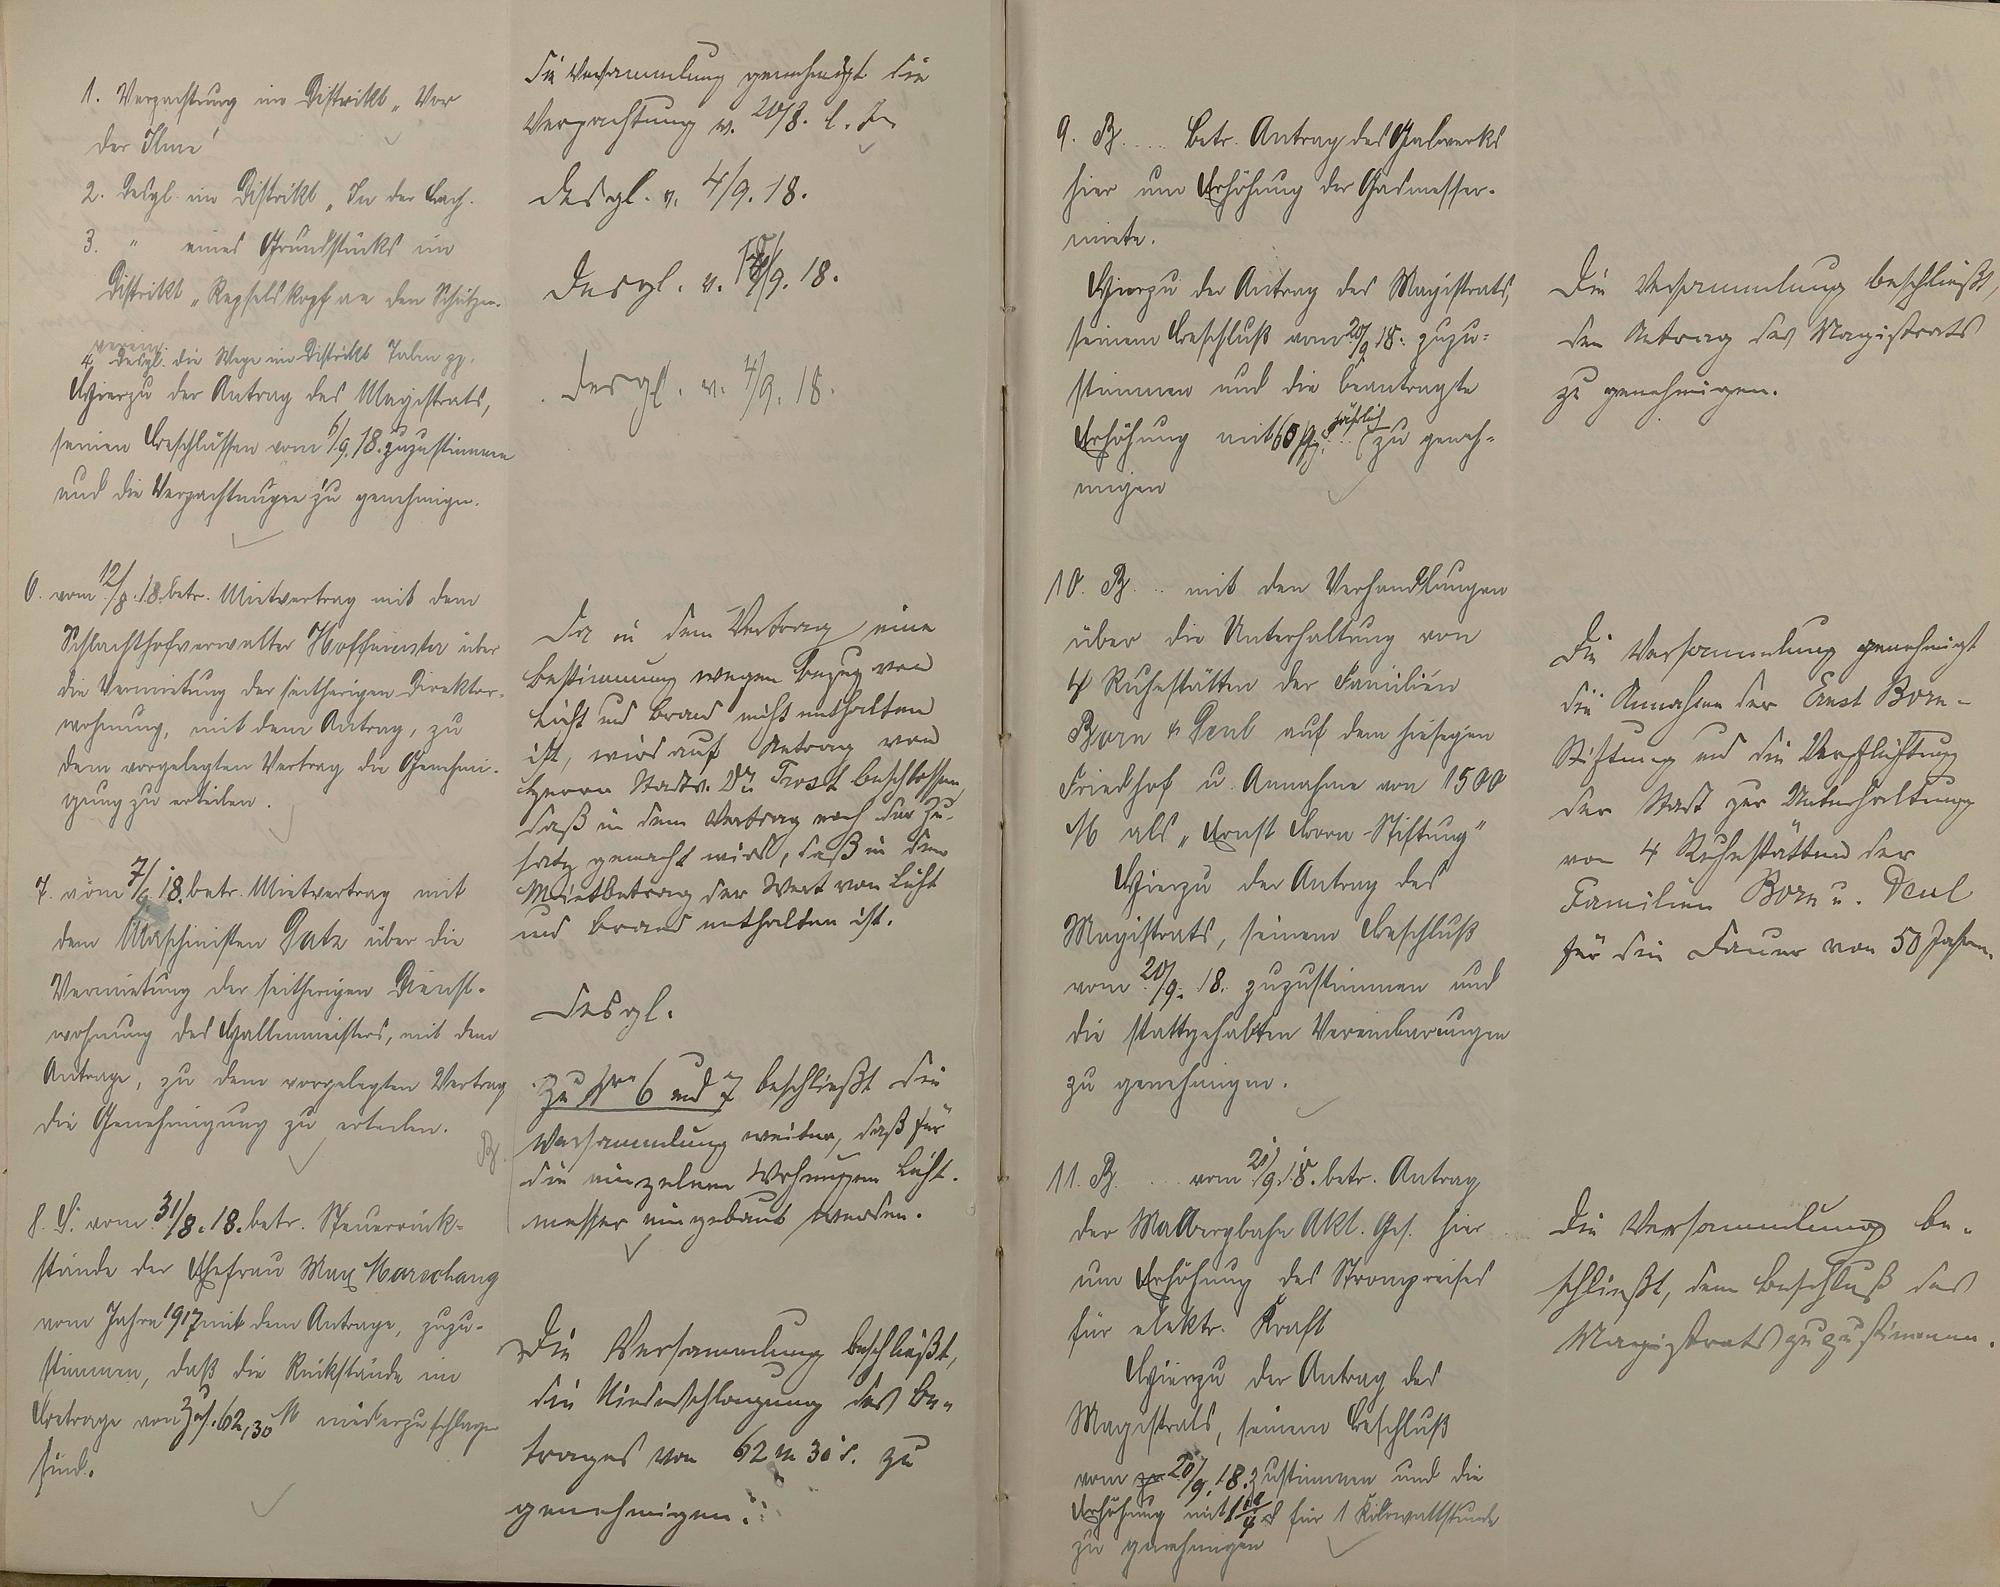 1. Verpachtung im Distrikt „Vor
der Ilme"
2. Desgl. im Distrikt „In der Bach.
3. " eines Grundstücks im
Distrikt „Kopf an den Schützen-
verein.
4. Desgl. die Wege im Distrikt
Hierzu der Antrag des Magistrats,
seinen Beschlüssen vom 6/9.18. zuzustimmen
und die Verpachtungen zu genehmigen.
6. vom 12/8.18. betr. Mietvertrag mit dem
Schlachthofverwalter über
die Vermietung der seitherigen Direktor-
wohnung, mit dem Antrag, zu
dem vorgelegten Vertrag die Genehmi-
gung zu erteilen.
7. vom 7/9.18. betr. Mietvertrag mit
dem Maschinisten über die
Vermietung der seitherigen Dienst-
wohnung des Hallenmeisters, mit dem
Antrage, zu dem vorgelegten Vertrag
die Genehmigung zu erteilen.
8. vom 31/8.18. betr. Steuerrück-
stände der Ehefrau Max Marschang
vom Jahre 1917 mit dem Antrage, zuzu-
stimmen, daß die Rückstände im
Betrage von 62,30 M niederzuschlagen
sind.
Die Versammlung genehmigt die
Verpachtung v. 20/8. l. J.
Desgl. v. 4/9.18.
Desgl. v. /9.18.
Desgl. v. 4/9.18.
Da in dem Vertrag eine
Bestimmung wegen Bezug von
Licht und Brand nicht enthalten
ist, wird auf Antrag von
Herrn Stadtv. Dr. Trost beschlossen,
daß in dem Vertrag noch der Zu-
satz gemacht wird, daß in dem
Mietbetrag der Wert von Licht
und Brand enthalten ist.
Desgl.
Zu Nro 6 und 7 beschließt die
Versammlung weiter, daß für
die einzelnen Wohnungen Licht-
messer eingebaut werden.
Die Versammlung beschließt,
die Niederschlagung des Be-
trages von 62 M 30 zu
genehmigen.
9. B. .... betr. Antrag des Gaswerks
hier um Erhöhung der Gasmesser-
miete.
Hierzu der Antrag des Magistrats,
seinem Beschluß vom 20/9.18. zuzu-
stimmen und die beantragte
Erhöhung mit 60 jährlich zu geneh-
migen
10. B. .. mit den Verhandlungen
über die Unterhaltung von
4 Ruhestätten der Familien
Born u. Deul auf dem hiesigen
Friedhof u. Annahme von 1500
M als „Ernst Born-Stiftung"
Hierzu der Antrag des
Magistrats, seinem Beschluß
vom 20/9.18. zuzustimmen und
die stattgehabten Vereinbarungen
zu genehmigen.
11. B. .... vom 21/9.18. betr. Antrag
der Malbergbahn Akt. Ges. hier
um Erhöhung des Strompreises
für elektr. Kraft
Hierzu der Antrag des
Magistrats, seinem Beschluß
vom 20/9.18. zustimmen und die
Erhöhung mit für 1 Kilowattstunde
zu genehmigen
Die Versammlung beschließt,
den Antrag des Magistrats
zu genehmigen.
Die Versammlung genehmigt
die Annahme der Ernst Born-
Stiftung und die Verpflichtung
der Stadt zur Unterhaltung
von 4 Ruhestätten der
Familien Born u. Deul
für die Dauer von 50 Jahren.
Die Versammlung be-
schließt, dem Beschluß des
Magistrats zuzustimmen.